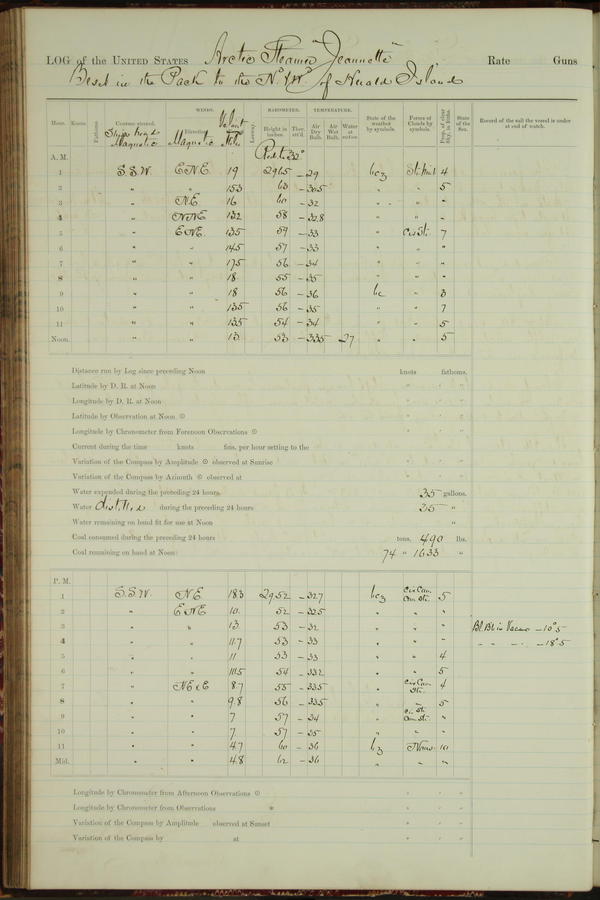 LOG of the UNITED STATES Arctic Steamer "Jeannette", Rate Guns
Beset in the Pack to the Nd & Wd of Herald Island
Hour. Knots. Fathoms. Courses steered. WINDS. Direction. Leeway. BAROMETER. Height in inches. Ther. att'd. TEMPERATURE. Air Dry Bulb. Air Wet Bulb. Water at surface. State of the weather by symbols. Forms of Clouds by symbols. Prop. of clear sky, in tenths. State of the Sea. Record of the sail the vessel is under at end of watch.
Ship's head Magnetic Magnetic
A. M.
1 S.S.W. ENE 19 2965 -29 bcz 4
2 " " 153 63 -30.5 " " 5
3 " NE 16 60 -32 " " "
4 " NNE 132 58 -32.8 " " "
5 " ENE 135 59 -33 " Cir St. 7
6 " " 145 57 -33 " " "
7 " " 175 56 -34 " " "
8 " " 18 55 -35 " " "
9 " " 18 56 -36 bc " 3
10 " " 135 56 -35 " " 7
11 " " 135 54 -34 " " 5
Noon. " " 13 53 -33.5 27 " " 5
Distance run by Log since preceding Noon knots fathoms.
Latitude by D. R. at Noon ° ' "
Longitude by D. R. at Noon ° ' "
Latitude by Observation at Noon ☉ ° ' "
Longitude by Chronometer from Forenoon Observations ☉ ° ' "
Current during the time knots fms. per hour setting to the
Variation of the Compass by Amplitude ☉ observed at Sunrise ° ' "
Variation of the Compass by Azimuth ☉ observed at ° ' "
Water expended during the preceding 24 hours. 35 gallons.
Water distilled during the preceding 24 hours 35 "
Water remaining on hand fit for use at Noon "
Coal consumed during the preceding 24 hours tons, 490 lbs.
Coal remaining on hand at Noon: 74 " 1633 "
P. M.
1 S.S.W. NE 183 2952 -32.7 bcz Cir Cum Cum Str. 5
2 " ENE 10 52 -32.5 " " "
3 " " 13 53 -32 " " " Bl. Bl. in Vacuo -10°5
4 " " 11.7 53 -33 " " " " " " -18°5
5 " " 11 53 -33 " " 4
6 " " 10.5 54 -33.2 " " 5
7 " NExE 8.7 55 -33.5 " Cir Cum Str. 4
8 " " 9.8 56 -33.5 " " 5
9 " " 7 57 -34 " Cir St. Cum St. "
10 " " 7 57 -35 " " "
11 " " 4.7 60 -36 bz None 10
Mid. " " 4.8 62 -36 " " "
Longitude by Chronometer from Afternoon Observations ☉ ° ' "
Longitude by Chronometer from Observations * ° ' "
Variation of the Compass by Amplitude observed at Sunset ° ' "
Variation of the Compass by at ° ' "